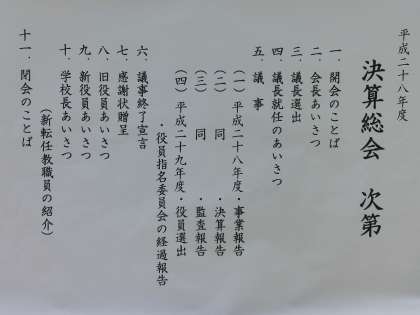 平成二十八年度
決算総会 次第
一．開会のことば
二．会長あいさつ
三．議長選出
四．議長就任のあいさつ
五．議 事
（一）平成二十八年度・事業報告
（二） 同 ・決算報告
（三） 同 ・監査報告
（四）平成二十九年度・役員選出
・役員指名委員会の経過報告
六．議事終了宣言
七．感謝状贈呈
八．旧役員あいさつ
九．新役員あいさつ
十．学校長あいさつ
（新転任教職員の紹介）
十一．閉会のことば